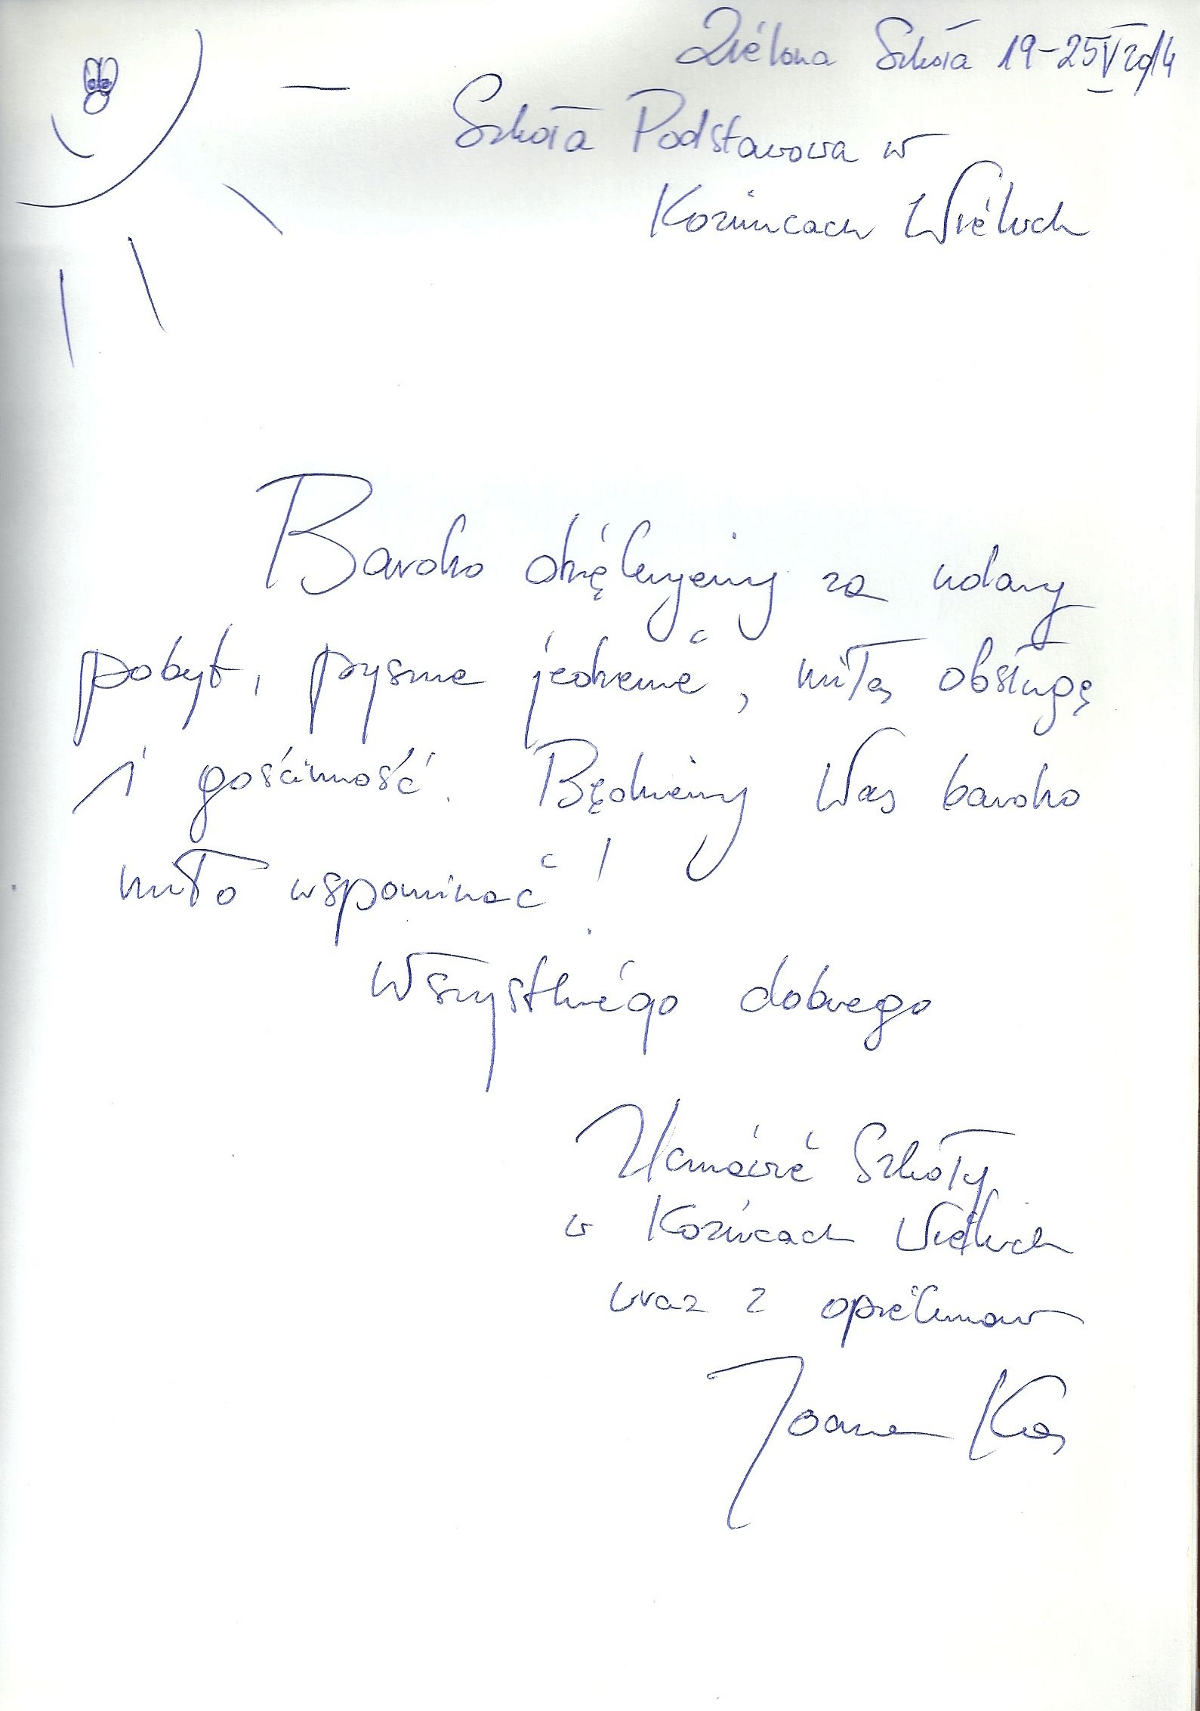 Zielona Szkoła 19-25 V 2014
Szkoła Podstawowa w
Koźmicach Wielkich
Bardzo dziękujemy za udany
pobyt, pyszne jedzenie, miłą obsługę
i gościnność. Będziemy Was bardzo
miło wspominać!
Wszystkiego dobrego
Uczniowie Szkoły
w Koźmicach Wielkich
wraz z opiekunami
Joanna